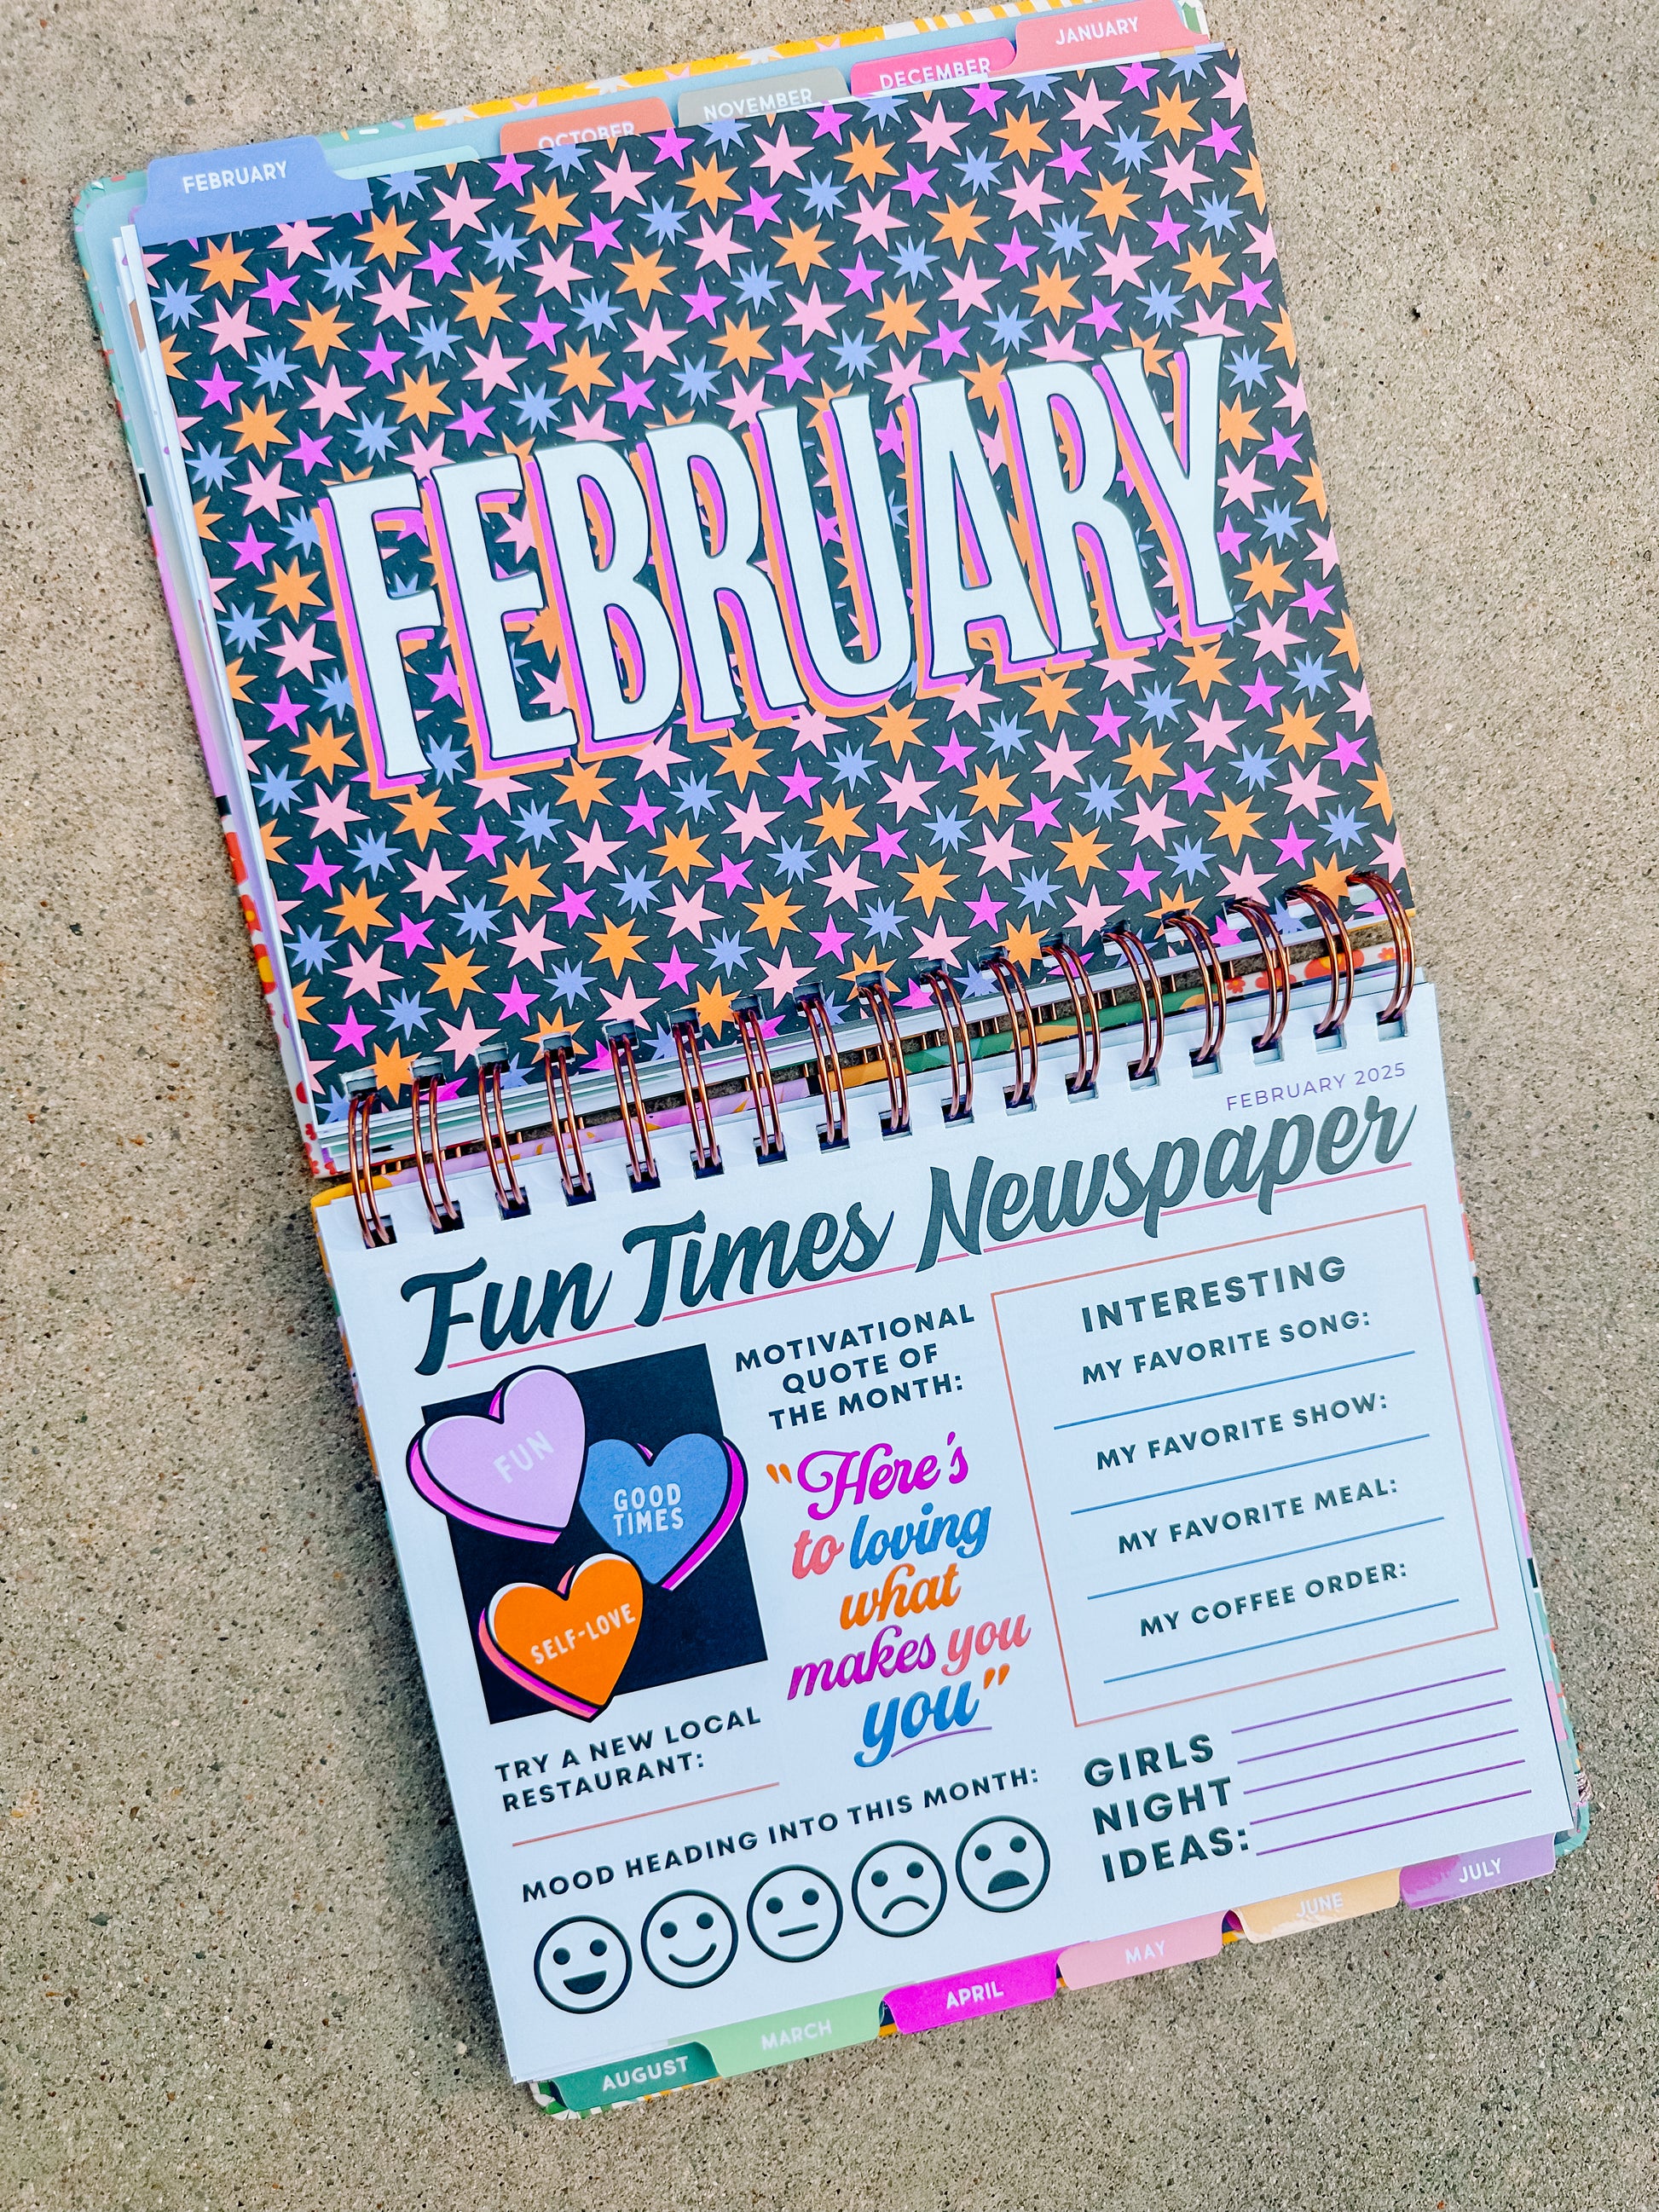 JANUARY
DECEMBER
NOVEMBER
OCTOBER
FEBRUARY
FEBRUARY
FEBRUARY 2025
Fun Times Newspaper
FUN
GOOD
TIMES
SELF-LOVE
TRY A NEW LOCAL
RESTAURANT:
MOTIVATIONAL
QUOTE OF
THE MONTH:
"Here's
to loving
what
makes you
you"
INTERESTING
MY FAVORITE SONG:
MY FAVORITE SHOW:
MY FAVORITE MEAL:
MY COFFEE ORDER:
MOOD HEADING INTO THIS MONTH:
GIRLS
NIGHT
IDEAS:
AUGUST
MARCH
APRIL
MAY
JUNE
JULY